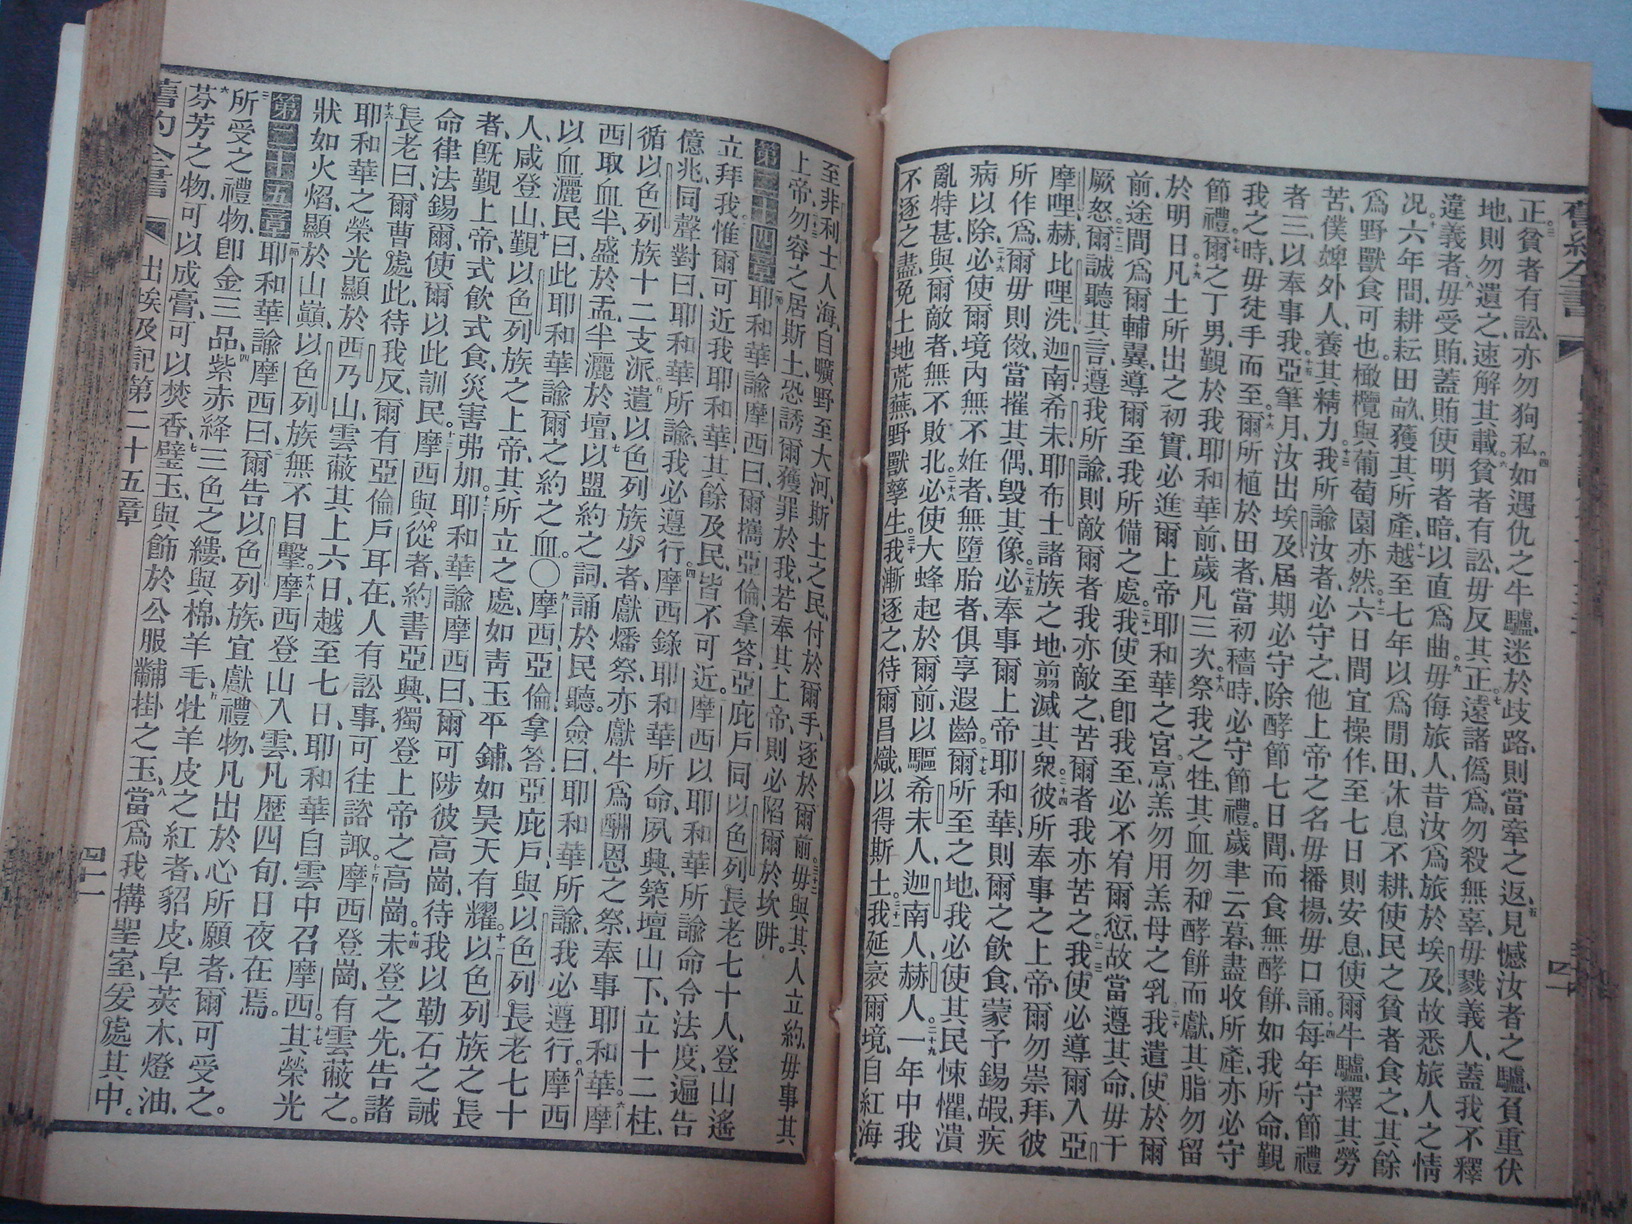 正貧者有訟亦勿狥私如遇仇之牛驢迷於歧路則當牽之返見憾汝者之驢負重伏
地則勿遺之速解其載貧者有訟毋反其正遠諸僞爲勿殺無辜毋戮義人蓋我不釋
違義者毋受賄蓋賄使明者暗以直爲曲毋侮旅人昔汝爲旅於埃及故悉旅人之情
况六年間耕耘田畝獲其所產越至七年以爲閒田休息不耕使民之貧者食之其餘
爲野獸食可也橄欖與葡萄園亦然六日間宜操作至七日則安息使爾牛驢釋其勞
苦僕婢外人養其精力我所諭汝者必守之他上帝之名毋播揚毋口誦每年守節禮
者三以奉事我亞筆月汝出埃及屆期必守除酵節七日間而食無酵餅如我所命覲
我之時毋徒手而至爾所植於田者當初穡時必守節禮歲聿云暮盡收所產亦必守
節禮爾之丁男覲於我耶和華前歲凡三次祭我之牲其血勿和酵餅而獻其脂勿留
於明日凡土所出之初實必進爾上帝耶和華之宮烹羔勿用羔母之乳我遣使於爾
前途間爲爾輔翼導爾至我所備之處我使至卽我至必不宥爾愆故當遵其命毋干
厥怒爾誠聽其言遵我所諭則敵爾者我亦敵之苦爾者我亦苦之我使必導爾入亞
摩哩赫比哩洗迦南希未耶布士諸族之地翦滅其衆彼所奉事之上帝爾勿崇拜彼
所作爲爾毋則傚當摧其偶毀其像必奉事爾上帝耶和華則爾之飲食蒙予錫嘏疾
病以除必使爾境內無不姙者無墮胎者俱享遐齡爾所至之地我必使其民悚懼潰
亂特甚與爾敵者無不敗北必使大蜂起於爾前以驅希未人迦南人赫人一年中我
不逐之盡免土地荒蕪野獸孳生我漸逐之待爾昌熾以得斯土我延袤爾境自紅海
至非利士人海自曠野至大河斯土之民付於爾手逐於爾前毋與其人立約毋事其
上帝勿容之居斯土恐誘爾獲罪於我若奉其上帝則必陷爾於坎阱
第二十四章 耶和華諭摩西曰爾攜亞倫拿答亞庇戶同以色列長老七十人登山遙
立拜我惟爾可近我耶和華其餘及民皆不可近摩西以耶和華所諭命令法度遍告
億兆同聲對曰耶和華所諭我必遵行摩西錄耶和華所命夙興築壇山下立十二柱
循以色列族十二支派遣以色列族少者獻燔祭亦獻牛爲酬恩之祭奉事耶和華摩
西取血半盛於盂半灑於壇以盟約之詞誦於民聽僉曰耶和華所諭我必遵行摩西
以血灑民曰此耶和華諭爾之約之血〇摩西亞倫拿答亞庇戶與以色列長老七十
人咸登山覲以色列族之上帝其所立之處如靑玉平鋪如昊天有耀以色列族之長
者旣覲上帝式飲式食災害弗加耶和華諭摩西曰爾可陟彼高崗待我以勒石之誡
命律法錫爾使爾以此訓民摩西與從者約書亞興獨登上帝之高崗未登之先告諸
長老曰爾曹處此待我反爾有亞倫戶耳在人有訟事可往諮諏摩西登崗有雲蔽之
耶和華之榮光顯於西乃山雲蔽其上六日越至七日耶和華自雲中召摩西其榮光
狀如火熖顯於山巔以色列族無不目擊摩西登山入雲凡歷四旬日夜在焉
第二十五章 耶和華諭摩西曰爾告以色列族宜獻禮物凡出於心所願者爾可受之
所受之禮物卽金三品紫赤絳三色之縷與棉羊毛牡羊皮之紅者貂皮皁莢木燈油
芬芳之物可以成膏可以焚香璧玉與飾於公服黼掛之玉當爲我搆聖室爰處其中
舊約全書 出埃及記第二十五章 四十二